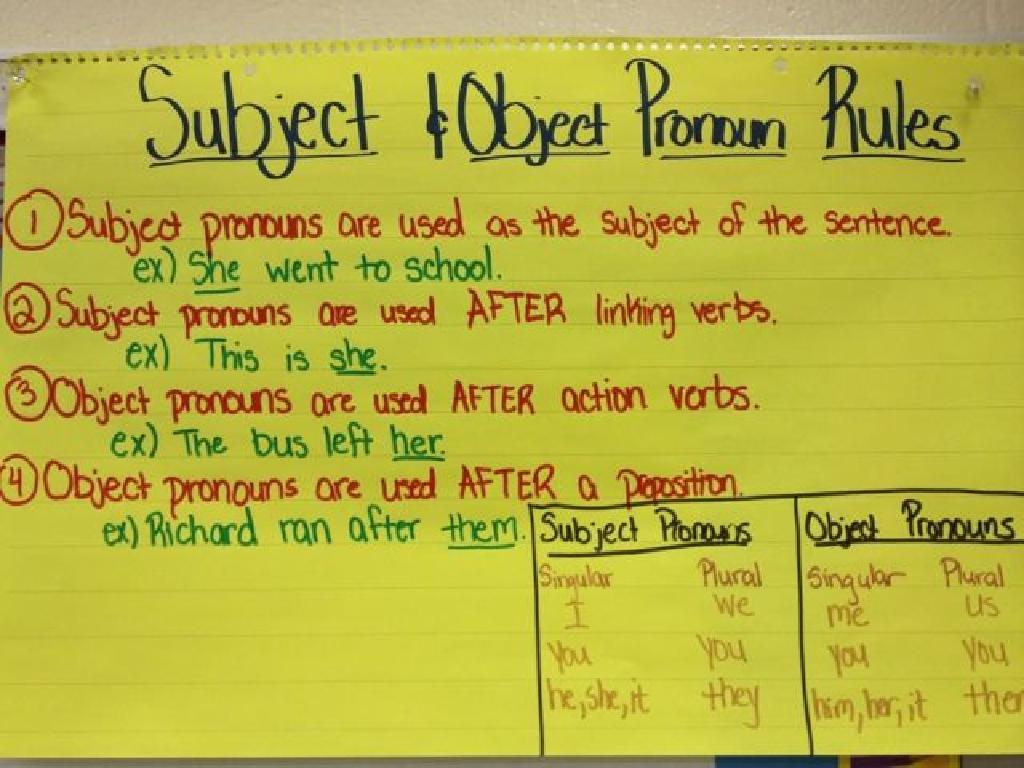 Subject & Object Pronoun Rules
1 Subject pronouns are used as the subject of the sentence.
ex) She went to school.
2 Subject pronouns are used AFTER linking verbs.
ex) This is she.
3 Object pronouns are used AFTER action verbs.
ex) The bus left her.
4 Object pronouns are used AFTER a preposition.
ex) Richard ran after them.
Subject Pronouns Object Pronouns
Singular Plural Singular Plural
I we me us
you you you you
he, she, it they him, her, it